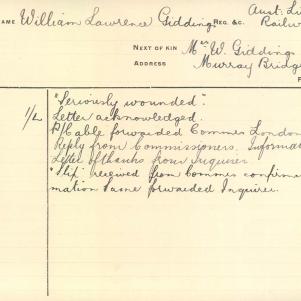 Aust: Li
NAME William Lawrence Gidding REG. &C. Railw
NEXT OF KIN Mrs W. Gidding
ADDRESS Murray Bridge
"Seriously wounded".
1/2 Letter acknowledged.
P/Cable forwarded Commrs London
Reply from Commissioners. Informat
Letter of thanks from Inquirer
"Slip" received from Commrs confirme
mation same forwarded Inquirer.